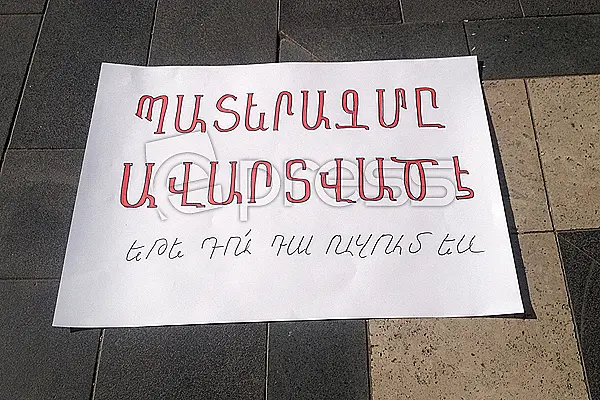 ՊԱՏԵՐԱԶՄԸ
ԱՎԱՐՏՎԱԾ Է
եթե ԴՈՒ՛ ԴԱ ՈՒԶՈՒՄ ԵՍ
epress